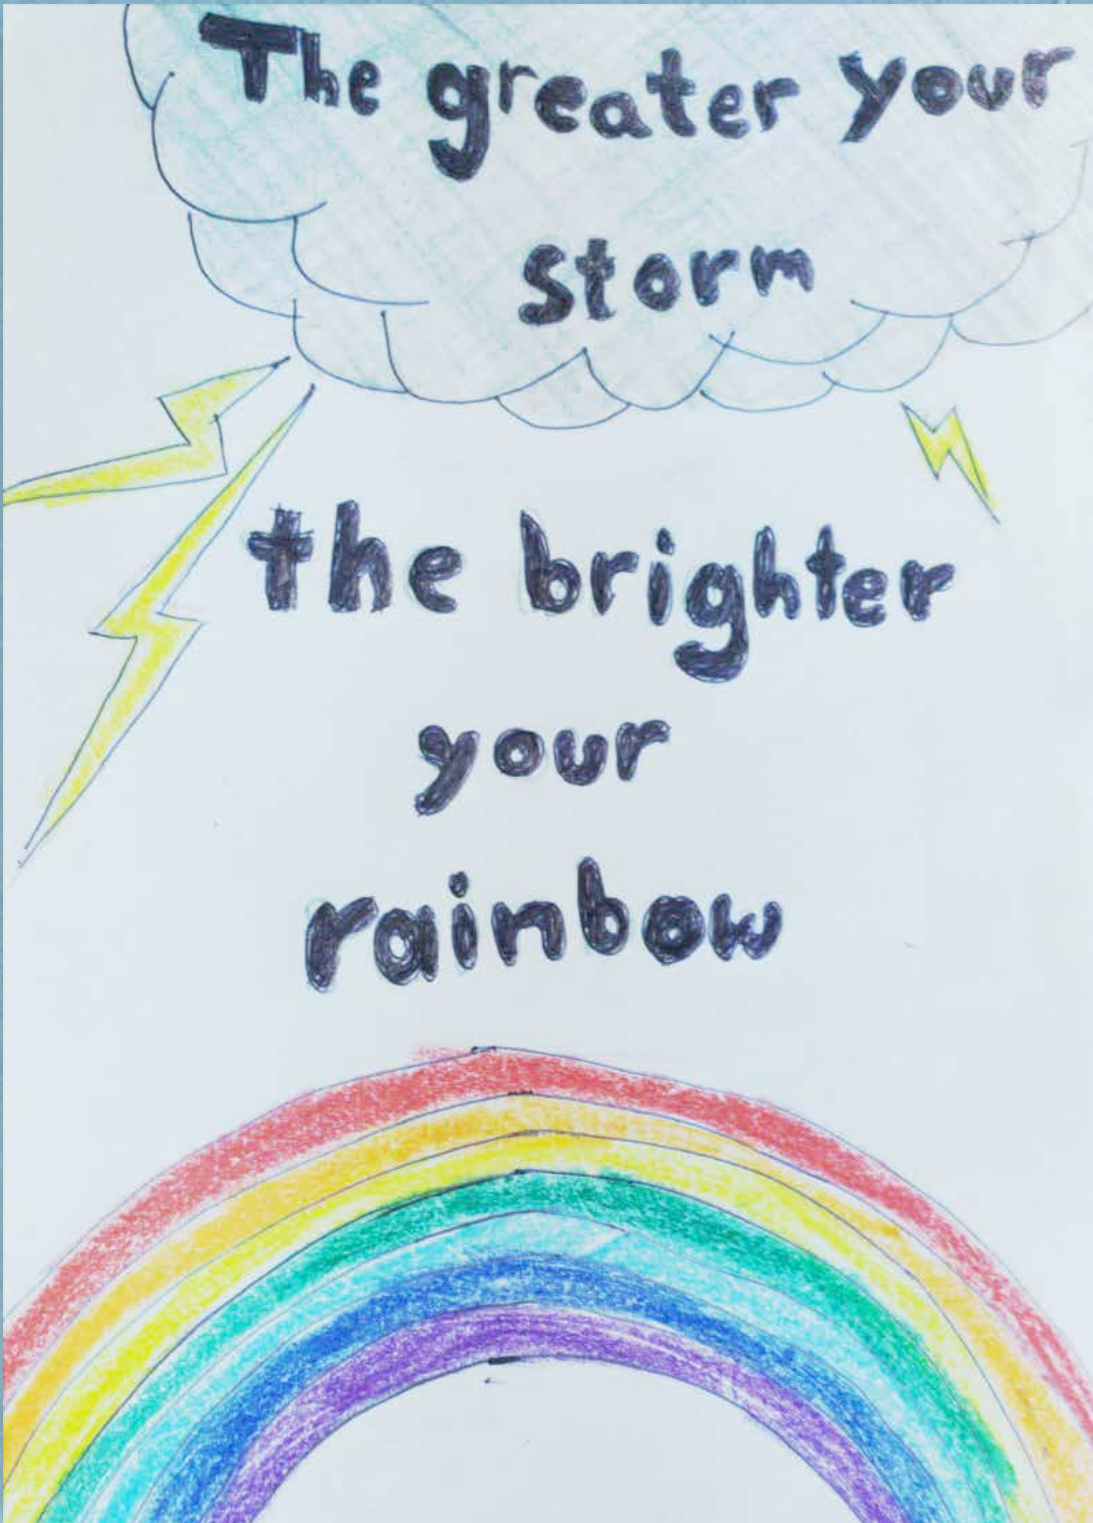 The greater your
storm
the brighter
your
rainbow